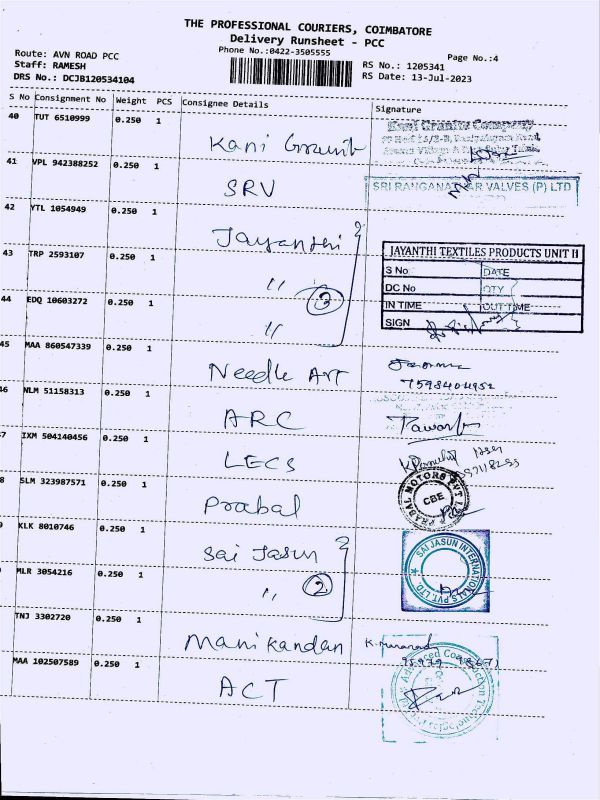 THE PROFESSIONAL COURIERS, COIMBATORE
Delivery Runsheet - PCC
Phone No.:0422-3505555
Page No.:4
Route: AVN ROAD PCC
Staff: RAMESH
DRS No.: DCJB120534104
RS No.: 1205341
RS Date: 13-Jul-2023
S No Consignment No Weight PCS Consignee Details Signature
40 TUT 6510999 0.250 1 Kani Granit
Kani Granite Company
41 VPL 942388252 0.250 1 SRV
SRI RANGANATHAR VALVES (P) LTD
42 YTL 1054949 0.250 1 Jayanthi
43 TRP 2593107 0.250 1 "
3
44 EDQ 10603272 0.250 1 "
JAYANTHI TEXTILES PRODUCTS UNIT II
S No DATE
DC No QTY
IN TIME OUT TIME
SIGN
45 MAA 860547339 0.250 1 Needle Art
7598404952
46 NLM 51158313 0.250 1 ARC
7 IXM 504140456 0.250 1 LECS
8 SLM 323987571 0.250 1 Prabal
PRABAL MOTORS PVT LTD
CBE
9 KLK 8010746 0.250 1 Sai Jasun
SAI JASUN INTERNATIONALS PVT. LTD.
MLR 3054216 0.250 1 "
2
TNJ 3302720 0.250 1 Manikandan
MAA 102507589 0.250 1 ACT
Advanced Construction Technologies